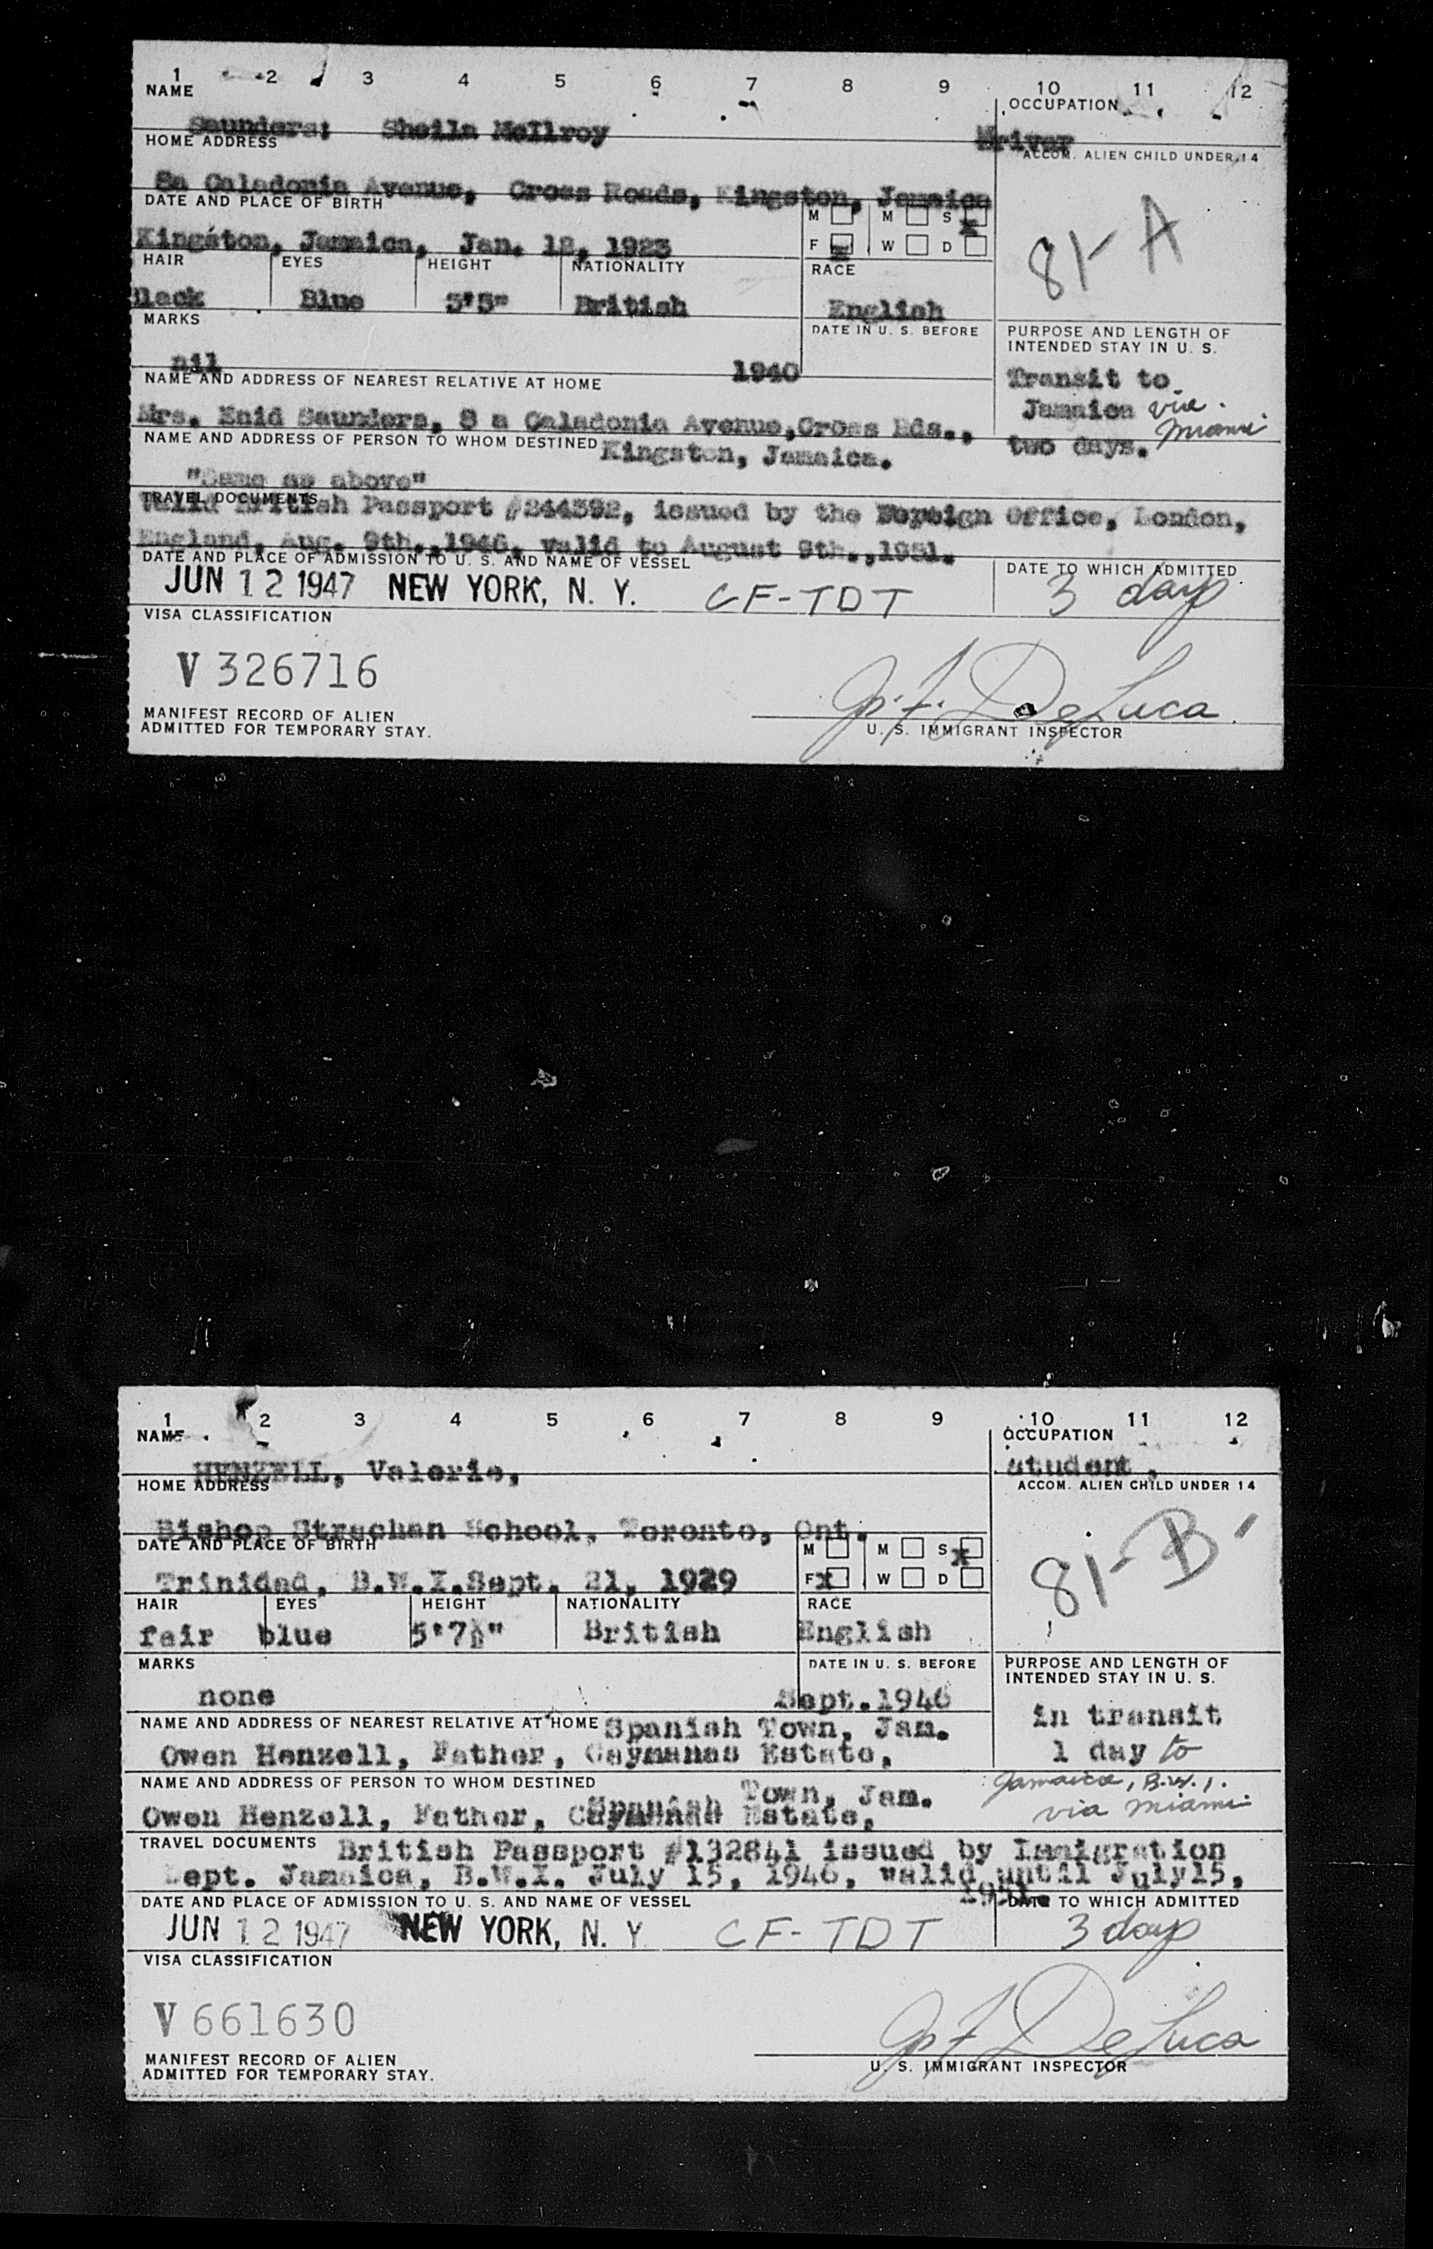 1 2 3 4 5 6 7 8 9 10 11 12
NAME OCCUPATION
Saunders: Sheila McIlroy Driver
HOME ADDRESS ACCOM. ALIEN CHILD UNDER 14
8a Caladonia Avenue, Cross Roads, Kingston, Jamaica
DATE AND PLACE OF BIRTH M M S x
81-A
Kingston, Jamaica, Jan. 12, 1923 F x W D
HAIR EYES HEIGHT NATIONALITY RACE
Black Blue 5'5" British English
MARKS DATE IN U. S. BEFORE PURPOSE AND LENGTH OF
INTENDED STAY IN U. S.
nil 1940 Transit to
NAME AND ADDRESS OF NEAREST RELATIVE AT HOME
Jamaica via
Mrs. Enid Saunders, 8 a Caladonia Avenue,Cross Rds., Miami
NAME AND ADDRESS OF PERSON TO WHOM DESTINED Kingston, Jamaica. two days.
"Same as above"
TRAVEL DOCUMENTS
Valid British Passport #244592, issued by the Foreign Office, London,
England, Aug. 9th.,1946, valid to August 9th.,1951.
DATE AND PLACE OF ADMISSION TO U. S. AND NAME OF VESSEL DATE TO WHICH ADMITTED
JUN 12 1947 NEW YORK, N. Y. CF-TDT 3 days
VISA CLASSIFICATION
V 326716
J. F. DeLuca
MANIFEST RECORD OF ALIEN
ADMITTED FOR TEMPORARY STAY. U. S. IMMIGRANT INSPECTOR
1 2 3 4 5 6 7 8 9 10 11 12
NAME OCCUPATION
HENZELL, Valerie, student,
HOME ADDRESS ACCOM. ALIEN CHILD UNDER 14
Bishop Strachan School, Toronto, Ont.
DATE AND PLACE OF BIRTH M M S x
81-B-
Trinidad, B.W.I.Sept. 21, 1929 F x W D
HAIR EYES HEIGHT NATIONALITY RACE
fair blue 5'7½" British English
MARKS DATE IN U. S. BEFORE PURPOSE AND LENGTH OF
INTENDED STAY IN U. S.
none Sept.1946
NAME AND ADDRESS OF NEAREST RELATIVE AT HOME Spanish Town, Jam. in transit
Owen Henzell, Father, Caymanas Estate, 1 day to
NAME AND ADDRESS OF PERSON TO WHOM DESTINED Jamaica, B.W.I.
Spanish Town, Jam. via Miami
Owen Henzell, Father, Caymanas Estate,
TRAVEL DOCUMENTS British Passport #132841 issued by Immigration
Dept. Jamaica, B.W.I. July 15, 1946, valid until July15,
1951.
DATE AND PLACE OF ADMISSION TO U. S. AND NAME OF VESSEL DATE TO WHICH ADMITTED
JUN 12 1947 NEW YORK, N. Y. CF-TDT 3 days
VISA CLASSIFICATION
V 661630
J. F. DeLuca
MANIFEST RECORD OF ALIEN
ADMITTED FOR TEMPORARY STAY. U. S. IMMIGRANT INSPECTOR